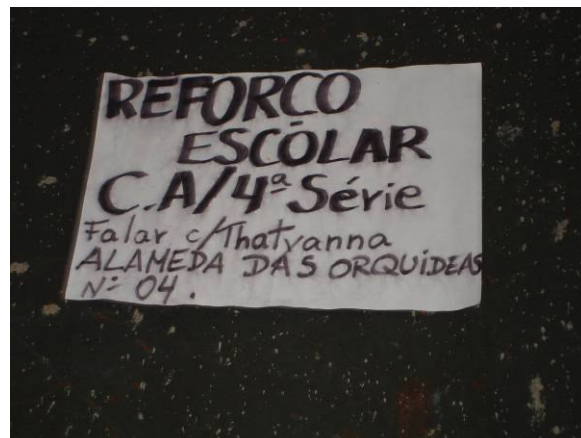 REFORÇO
ESCOLAR
C.A/4ª Série
Falar c/Thatyanna
ALAMEDA DAS ORQUiDEAS
Nº 04.